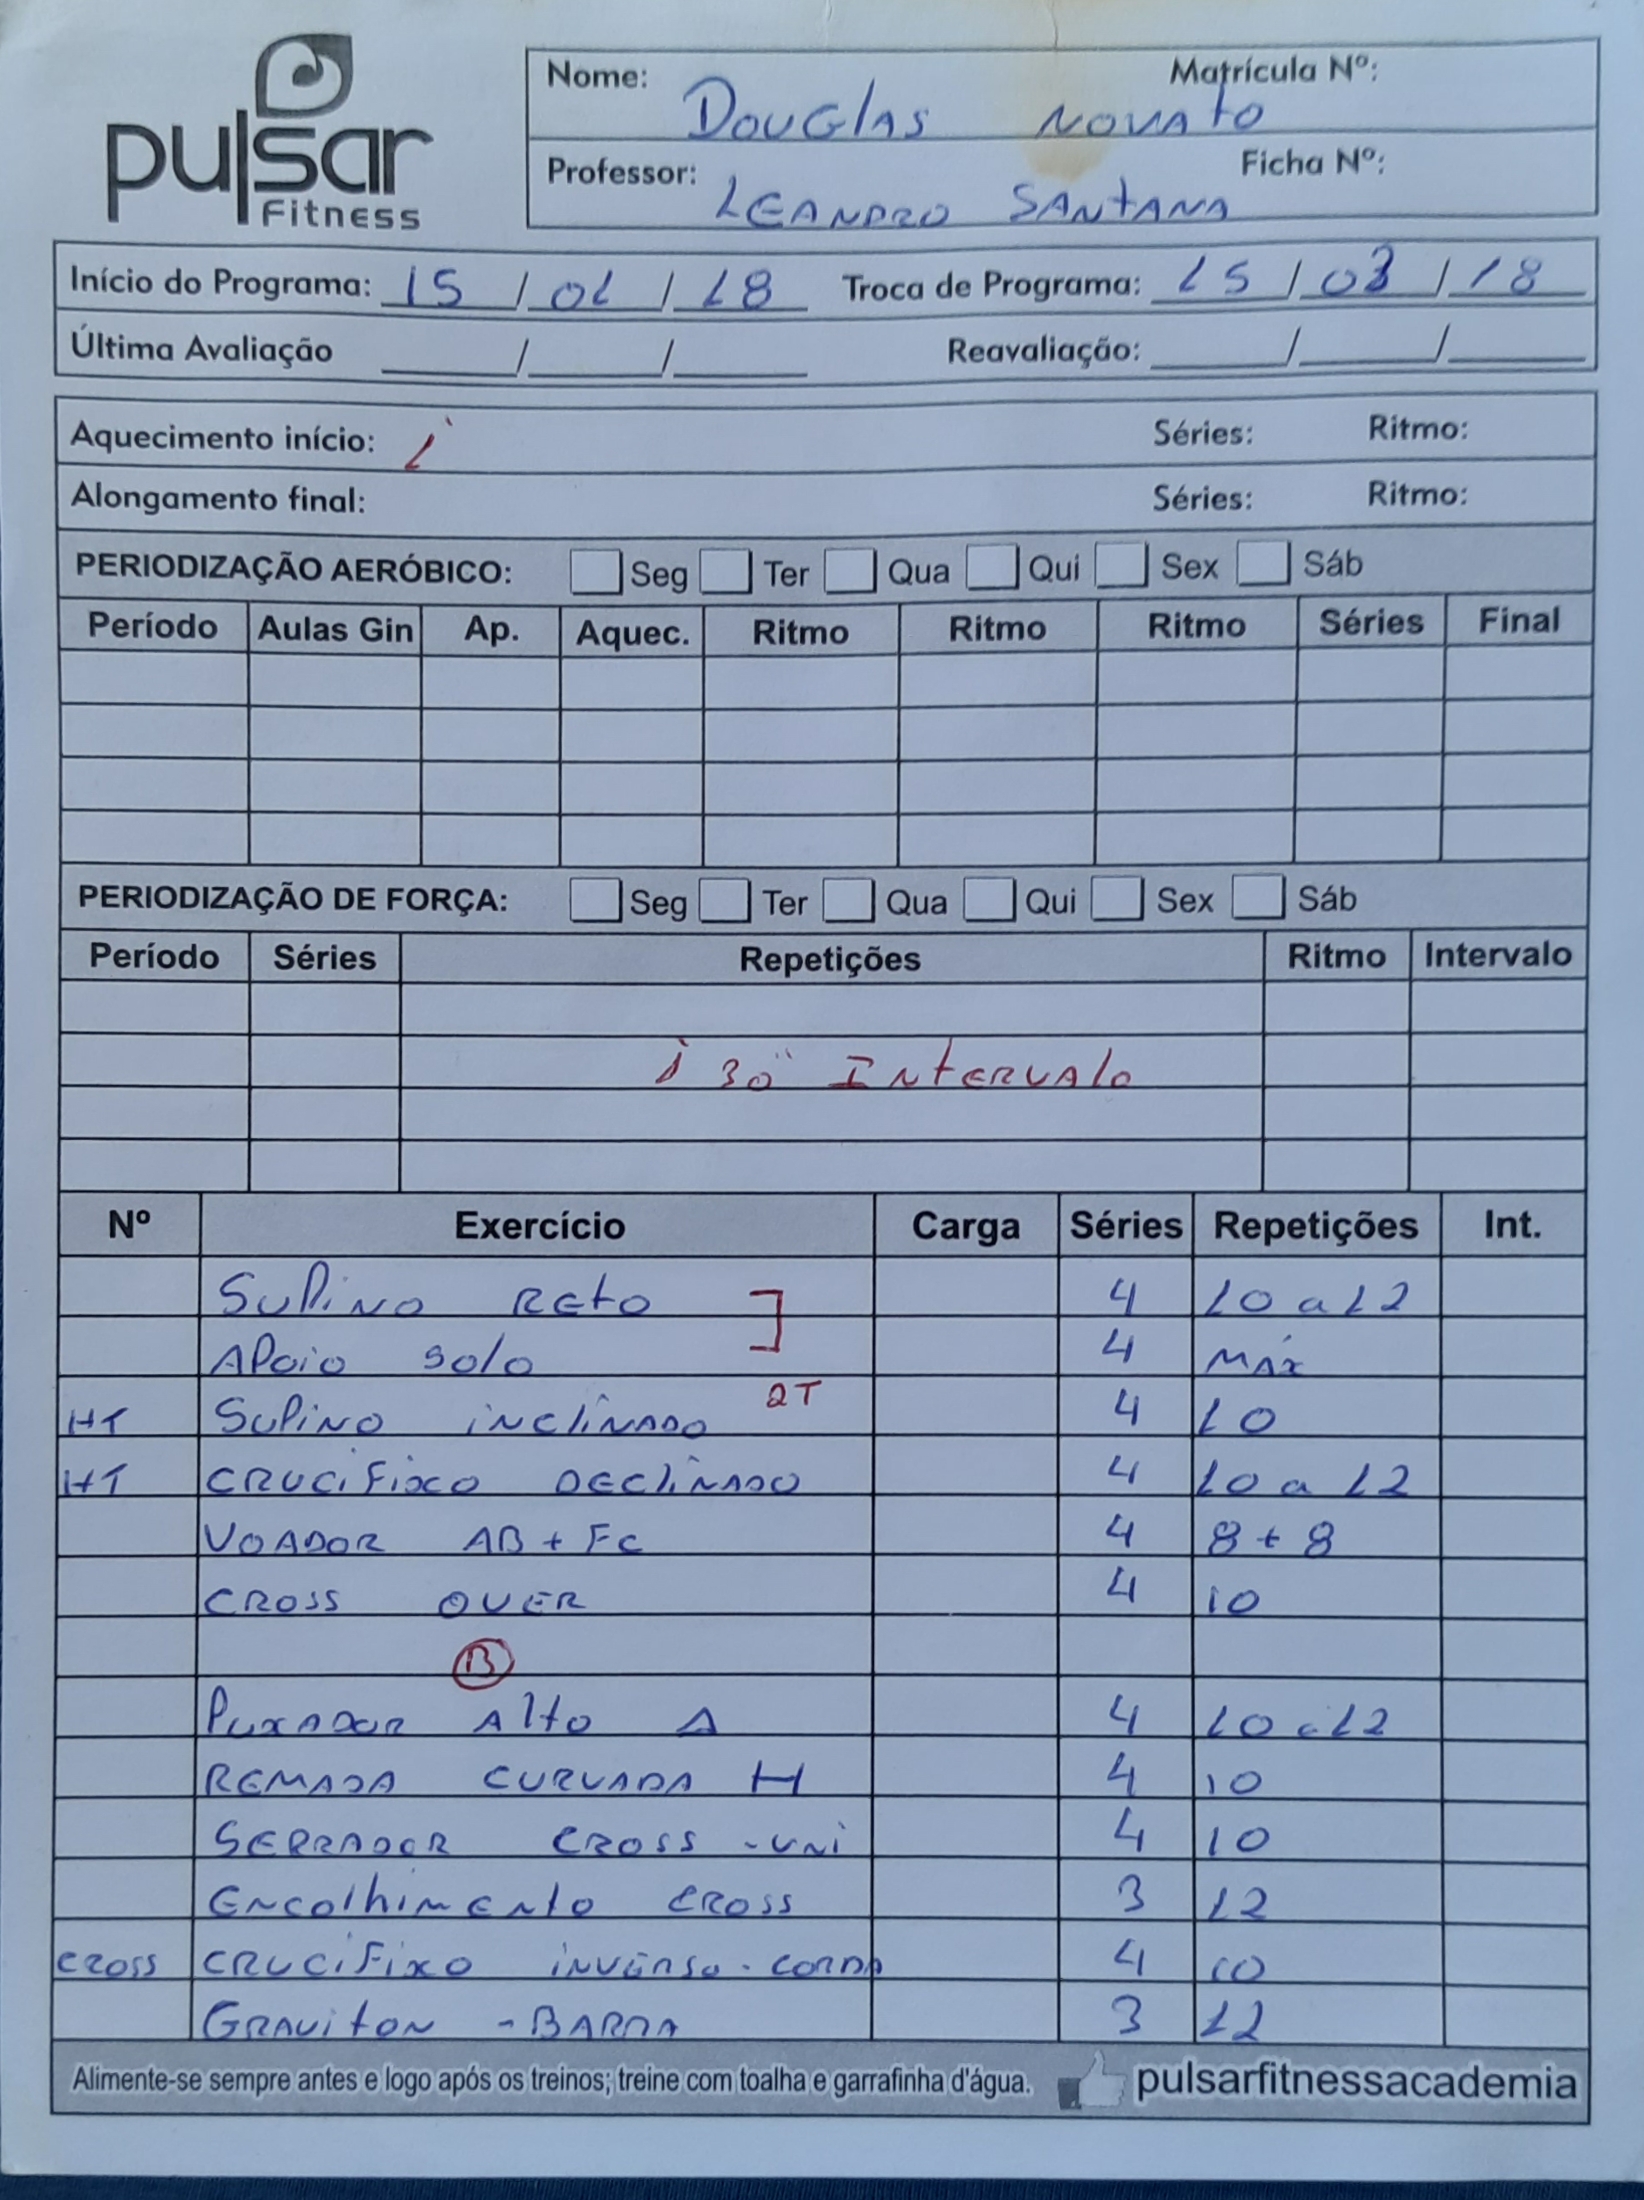 pulsar
Fitness
Nome: Douglas Novato Matrícula Nº:
Professor: Leandro Santana Ficha Nº:
Início do Programa: 15 / 01 / 18 Troca de Programa: 15 / 03 / 18
Última Avaliação ___/___/___ Reavaliação: ___/___/___
Aquecimento início: Séries: Ritmo:
Alongamento final: Séries: Ritmo:
PERIODIZAÇÃO AERÓBICO: Seg Ter Qua Qui Sex Sáb
Período Aulas Gin Ap. Aquec. Ritmo Ritmo Ritmo Séries Final
PERIODIZAÇÃO DE FORÇA: Seg Ter Qua Qui Sex Sáb
Período Séries Repetições Ritmo Intervalo
1' 30" Intervalo
Nº Exercício Carga Séries Repetições Int.
Supino Reto 4 10 a 12
Apoio solo 4 Máx
2T
HT Supino inclinado 4 10
HT Crucifixo Declinado 4 10 a 12
Voador AB + Fc 4 8 + 8
Cross over 4 10
B
Puxador Alto A 4 10 a 12
Remada curvada H 4 10
Serrador cross - uni 4 10
Encolhimento cross 3 12
cross Crucifixo inverso - corda 4 10
Graviton - Barra 3 12
Alimente-se sempre antes e logo após os treinos; treine com toalha e garrafinha d'água. pulsarfitnessacademia